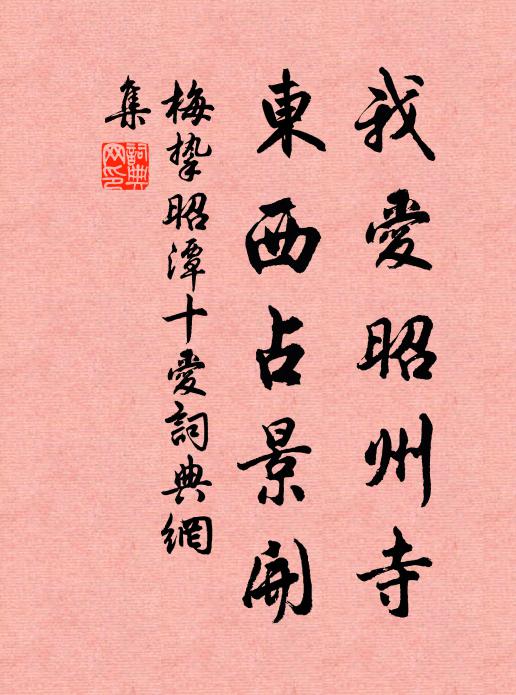 我愛昭州寺
東西占景開
梅摯昭潭十愛詞典網
集
詞典
网印